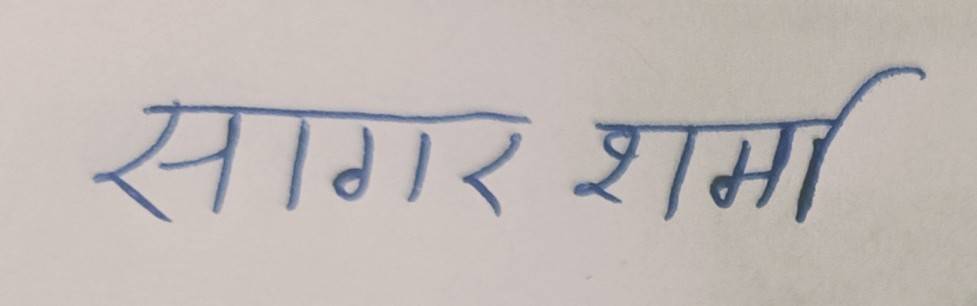 सागर शर्मा